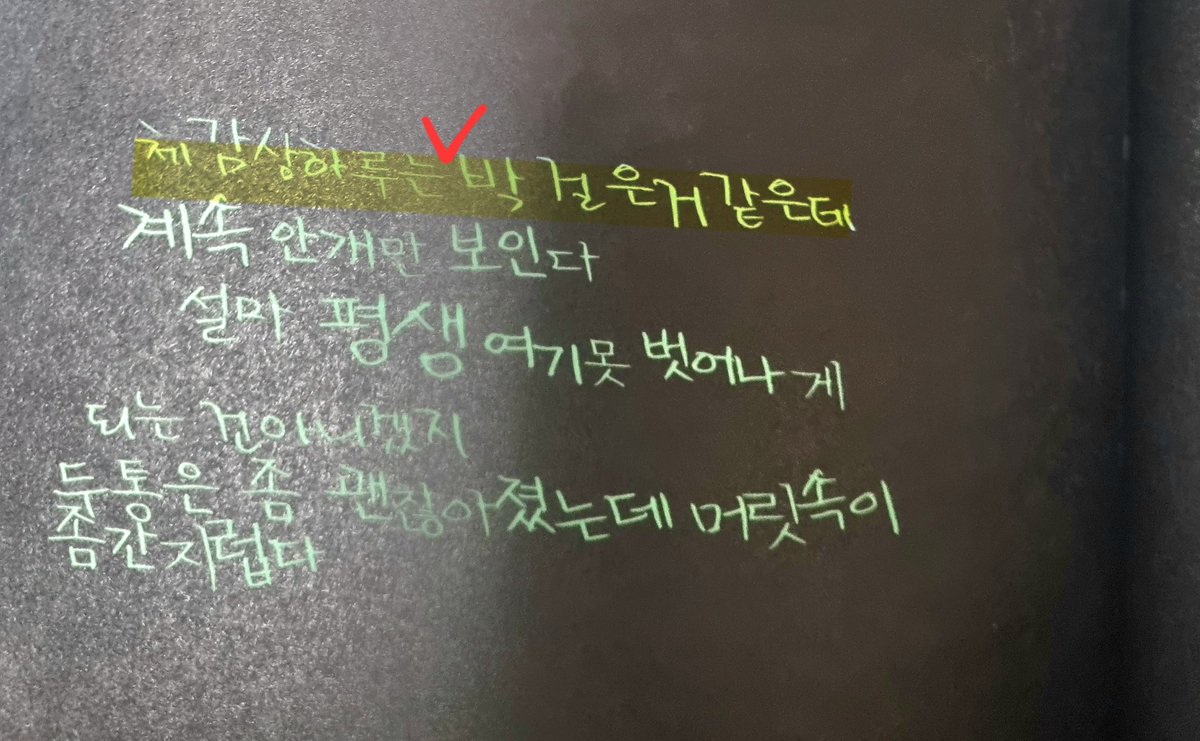 체감상 하루는 박 걸은거 같은데
계속 안개만 보인다
설마 평생 여기 못 벗어나게
되는 건 아니겠지
두통은 좀 괜찮아졌는데 머릿속이
좀 간지럽다